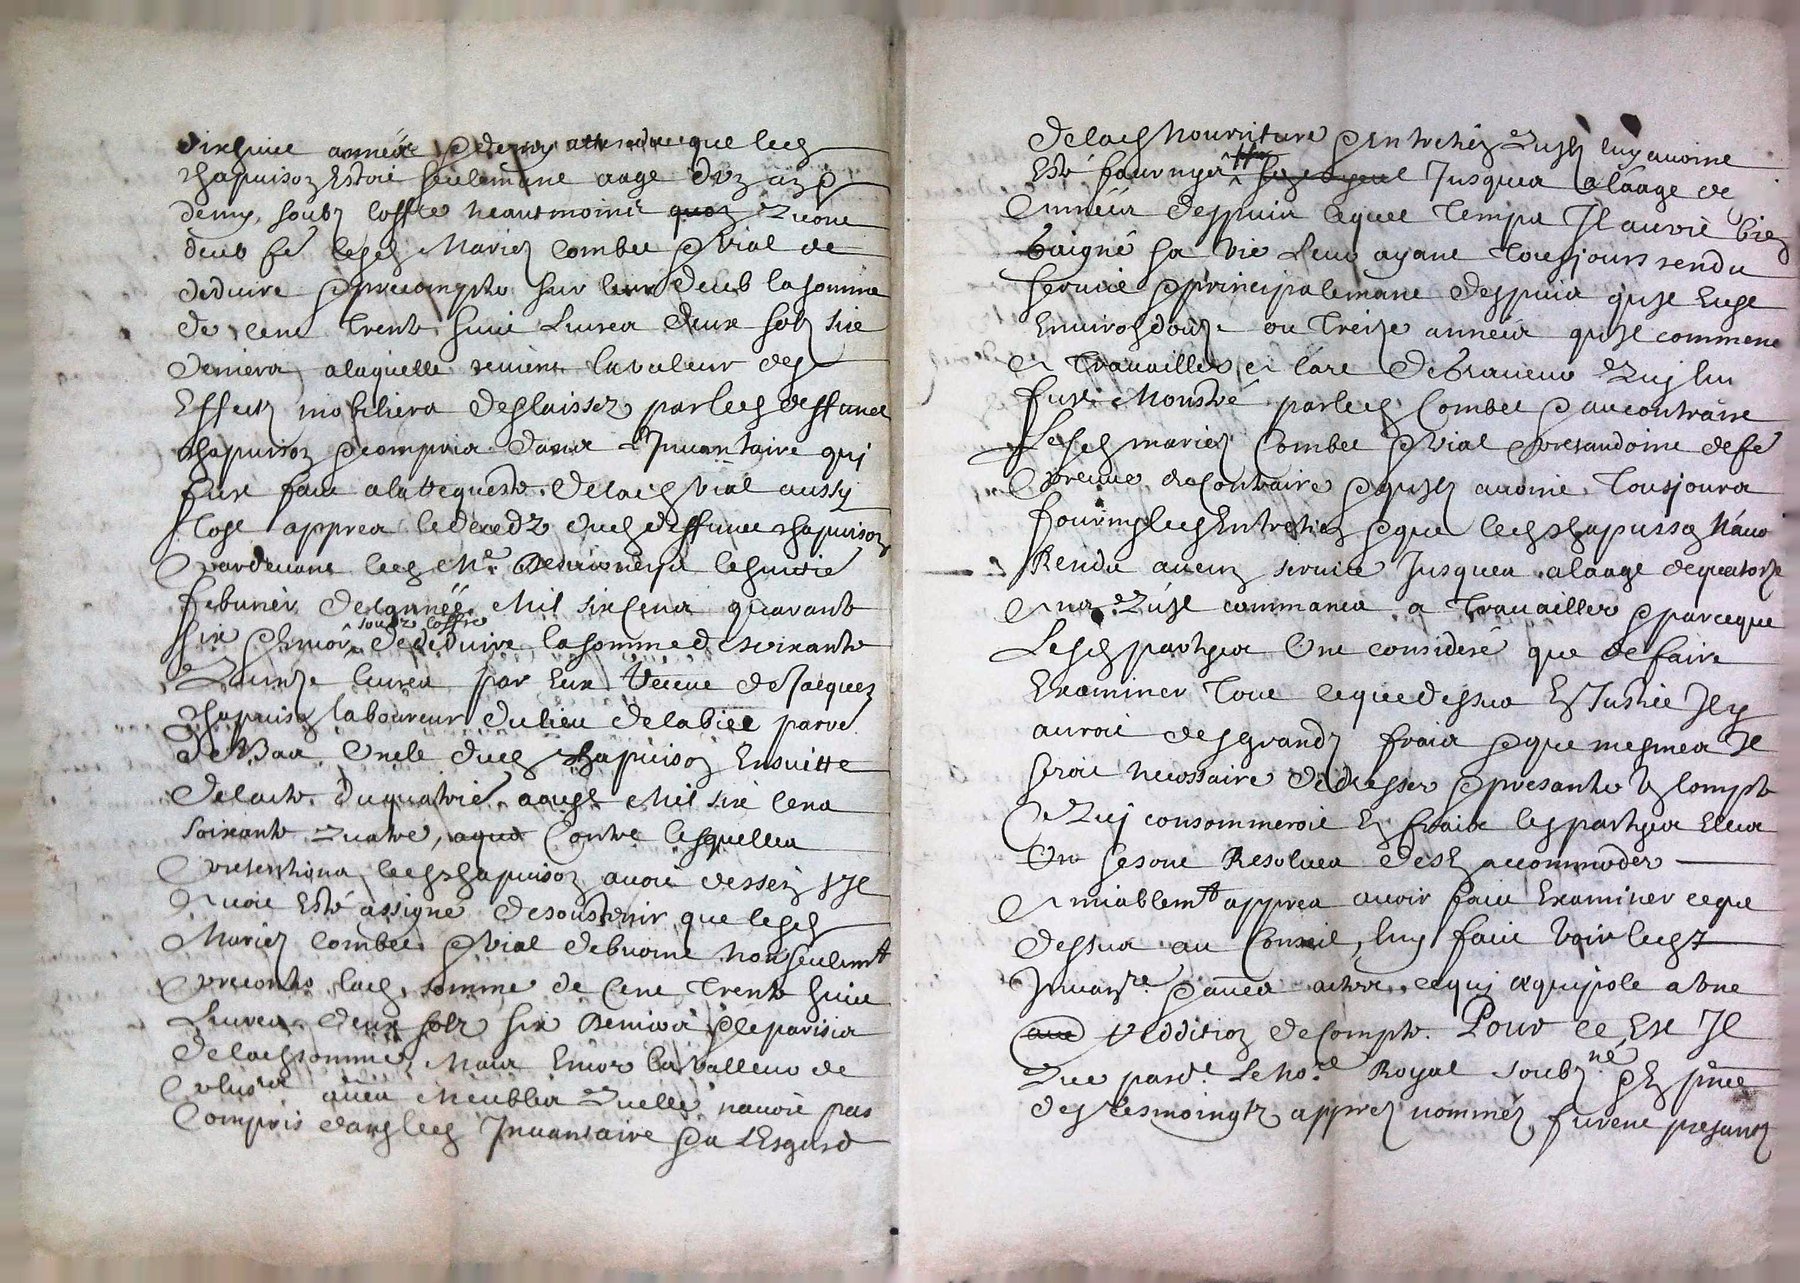 dixhuict années & demy attendu que led
Chapuison Estoit seulement aagé d'un an &
demy, soubz l'offre neantmoins quon
deub fé lesd Mariez Combet & Vial de
deduire & precompter sur leur deub la somme
de cent Trente huict Livres deux solz six
deniers, a laquelle revient la valeur des
Effectz mobiliers deslaissez par led deffunct
Chapuison & compris dans L'Inuentaire qui
fust faict a la Requeste de lad Vial aussy
tost appres le decedz dud deffunct Chapuison
Pardeuant led Me le huictie
feburier de l'année Mil six Cens quarante
six & Encor soubz l'offre de deduire la somme de soixante
Quinze liures par Eux Receue de Jacques
Chapuison laboureur du lieu de parre
de Baa Oncle dud Chapuison Ensuitte
de l'acte du quatrie aoust Mil six Cens
soixante quatre, Contre lesquelles
Pretentions led Chapuison auoit dessein s'Il
Auoit Esté assigné de soustenir que lesd
Mariez Combet & Vial debuoint non seulemt
Precompter lad somme de Cent Trente huict
Liures deux solz six Deniers & le parisis
de lad somme, Mais Encor la Valleur de
Plusrs aues Meubles Quelle n'auoit pas
Compris dans led Inuantaire & a L'Esgard
de lad nourriture & Entretien Quilz luy auoint
Esté fournyes Jusques a l'aage de
Années despuis lequel Temps Il auroit bien
Gaigné sa Vie Leur ayant Tousjours rendu
seruice & principalement despuis qu'Il Eust
Enuiron douze ou Treize années qu'Il commenc
A Trauailler a l'art de Graueur Quj luy
fust Monstré par led Combet & au contraire
Lesd mariez Combet & Vial Pretandoint de fé
Preuue du Contraire & quilz auoint Tousjours
fourny led Entretien & que led Chapuison n'auo
Rendu aucun seruice Jusques a l'aage de quatorze
Ans Qu'Il commança a Trauailler & parceque
Lesd partyes Ont consideré que de faire
Examiner Tout ce que dessus En Justice Il y
auroit des grandz fraix & que mesmes Il
seroit necessaire de dresser & presanter Un Compte
Quj consommeroit En fraix les partyes Elles
Ont se sont Resolues de s'En accommoder
Amiablemt appres auoir faict Examiner ce que
dessus au Conseil, luy faict Voir led
Inuanre & aues actes ce quj equipole a Une
reddition de Compte. Pour ce Est Il
Que pardt Le Nore Royal soubzné & En pnce
des Tesmoingtz appres nommés furent presantz